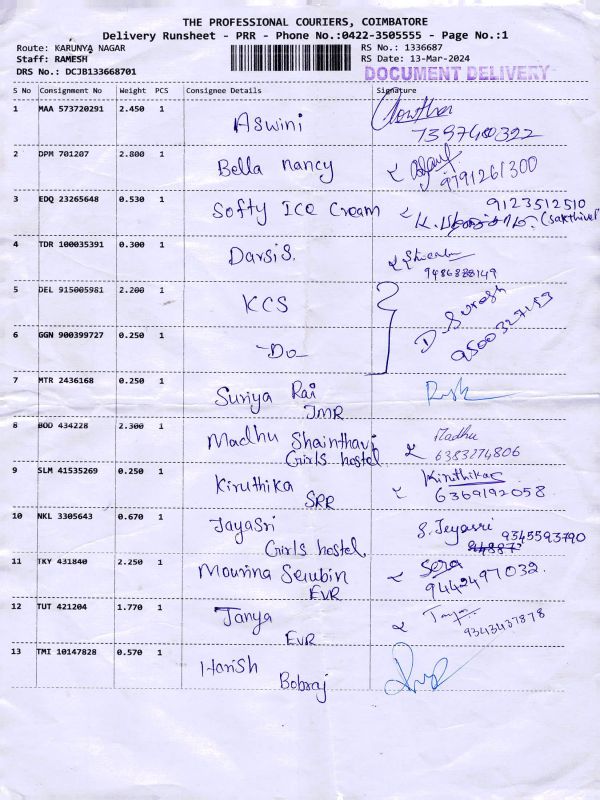 THE PROFESSIONAL COURIERS, COIMBATORE
Delivery Runsheet - PRR - Phone No.:0422-3505555 - Page No.:1
Route: KARUNYA NAGAR
RS No.: 1336687
Staff: RAMESH
RS Date: 13-Mar-2024
DRS No.: DCJB133668701
DOCUMENT DELIVERY
S No Consignment No Weight PCS Consignee Details Signature
1 MAA 573720291 2.450 1 Aswini
7397400322
2 DPM 701207 2.800 1 Bella nancy
9791261300
3 EDQ 23265648 0.530 1 Softy Ice Cream 9123512510
(Sakthivel)
4 TDR 100035391 0.300 1 Darsi S.
9486888149
5 DEL 915005981 2.200 1 KCS D. Suresh
6 GGN 900399727 0.250 1 -Do
7 MTR 2436168 0.250 1 Suriya Rai
JMR
8 BOD 434228 2.300 1 Madhu Shainthavi Madhu
Girls hostel 6383274806
9 SLM 41535269 0.250 1 Kiruthika Kiruthika
SRR 6369192058
10 NKL 3305643 0.670 1 JayaSri S. Jeyasri 9345593790
Girls hostel
11 TKY 431840 2.250 1 Mounna Serubin Sera
EVR 9442497032.
12 TUT 421204 1.770 1 Tanya Tanya
EVR 9343437878
13 TMI 10147828 0.570 1 Harish
Bobraj